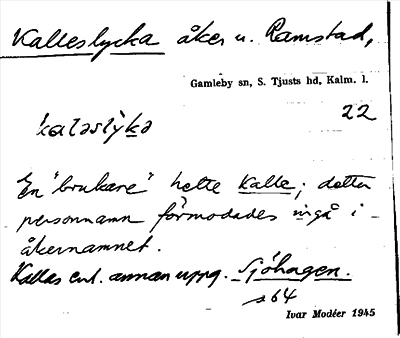 Kalleslycka åker u. Ramstad,
Gamleby sn, S. Tjusts hd, Kalm. l.
22
kaləslỳkə
En "brukare" hette Kalle; detta
personnamn förmodades ingå i
åkernamnet.
Kallas enl. annan uppg. Sjöhagen.
s 64
Ivar Modéer 1945